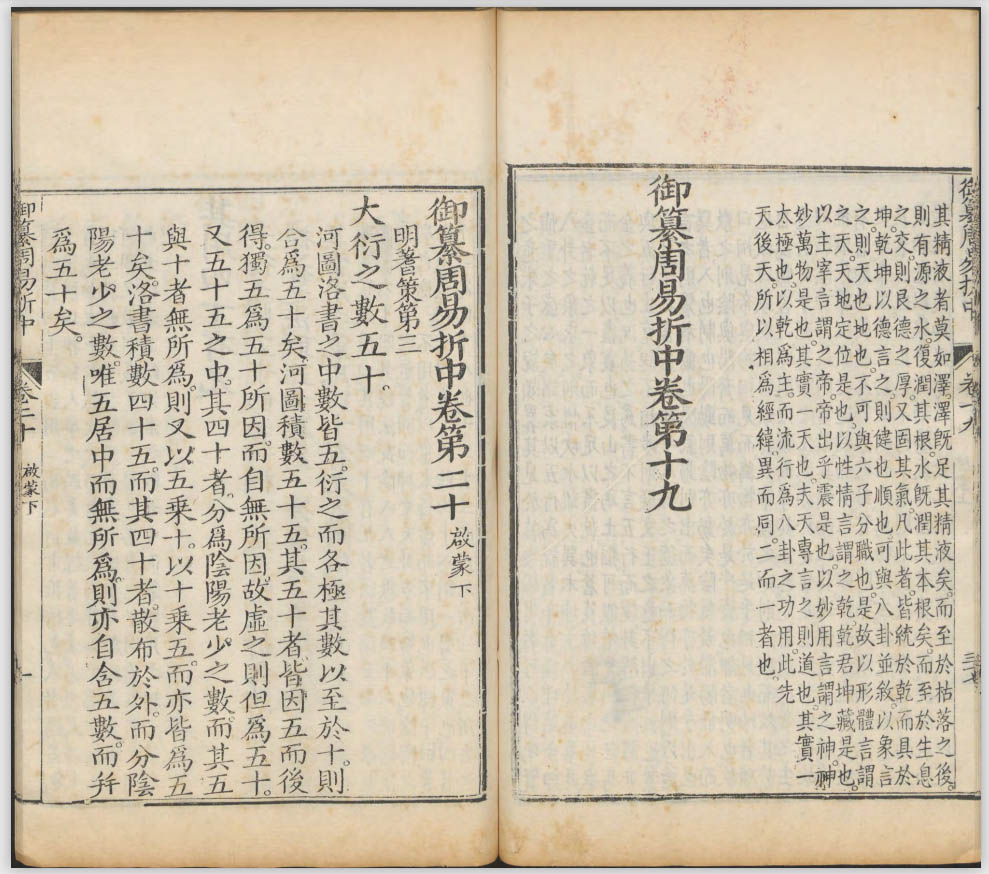 御纂周易折中
卷十九
其精液者莫如澤。澤既足其精液矣。而至於枯落之後。
則有源之水。復潤其根。水既潤其本根矣。而至於生息
之交。則艮德之厚。又固其氣。凡此者。皆統於乾而具於
坤。乾坤以德言之。則健也順也。可與八卦並敘。以象言
之。則天也地也。不可與六子分職也。是故以形體言謂
之天。天地定位是也。以性情言謂之乾。乾君坤藏是也。
以主宰言謂之帝。帝出乎震是也。以妙用言謂之神。神
妙萬物是也。其實一天也。夫天專言之則道也。其實一
太極也。以乾爲主。而流行爲八卦之功用。此先
天後天。所以相爲經緯。異而同。二而一者也。
御纂周易折中卷第十九
御纂周易折中卷第二十 啟蒙下
明蓍策第三
大衍之數五十。
河圖洛書之中數皆五。衍之而各極其數以至於十。則
合爲五十矣。河圖積數五十五。其五十者皆因五而後
得。獨五爲五十所因。而自無所因。故虛之則但爲五十。
又五十五之中。其四十者。分爲陰陽老少之數。而其五
與十者無所爲。則又以五乘十。以十乘五。而亦皆爲五
十矣。洛書積數四十五。而其四十者。散布於外。而分陰
陽老少之數。唯五居中而無所爲。則亦自含五數。而并
爲五十矣。
御纂周易折中
卷二十 啟蒙下
一